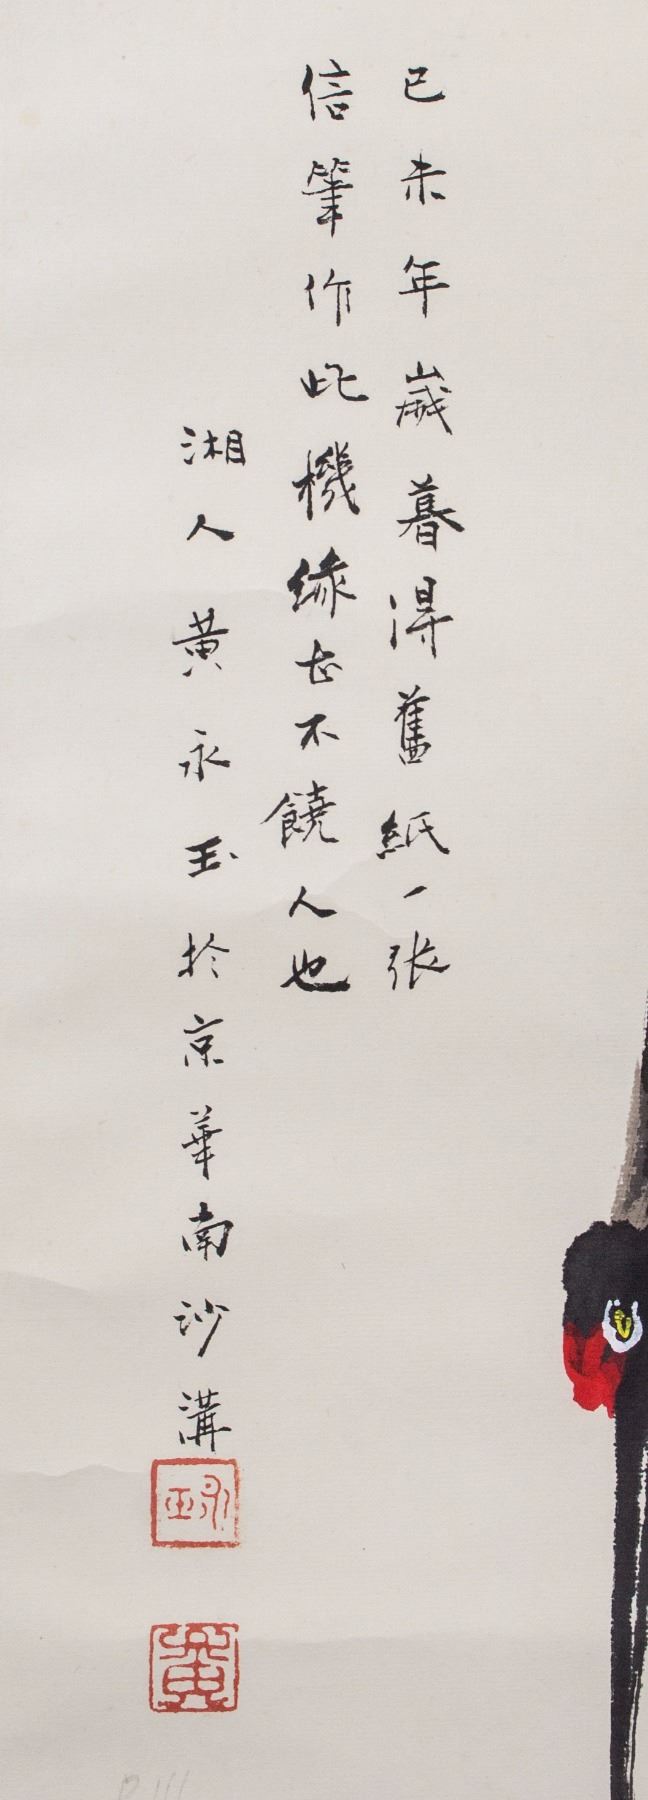 己未年歲暮得舊紙一張
信筆作此機緣甚不饒人也
湘人黃永玉於京華南沙溝
永玉
黃